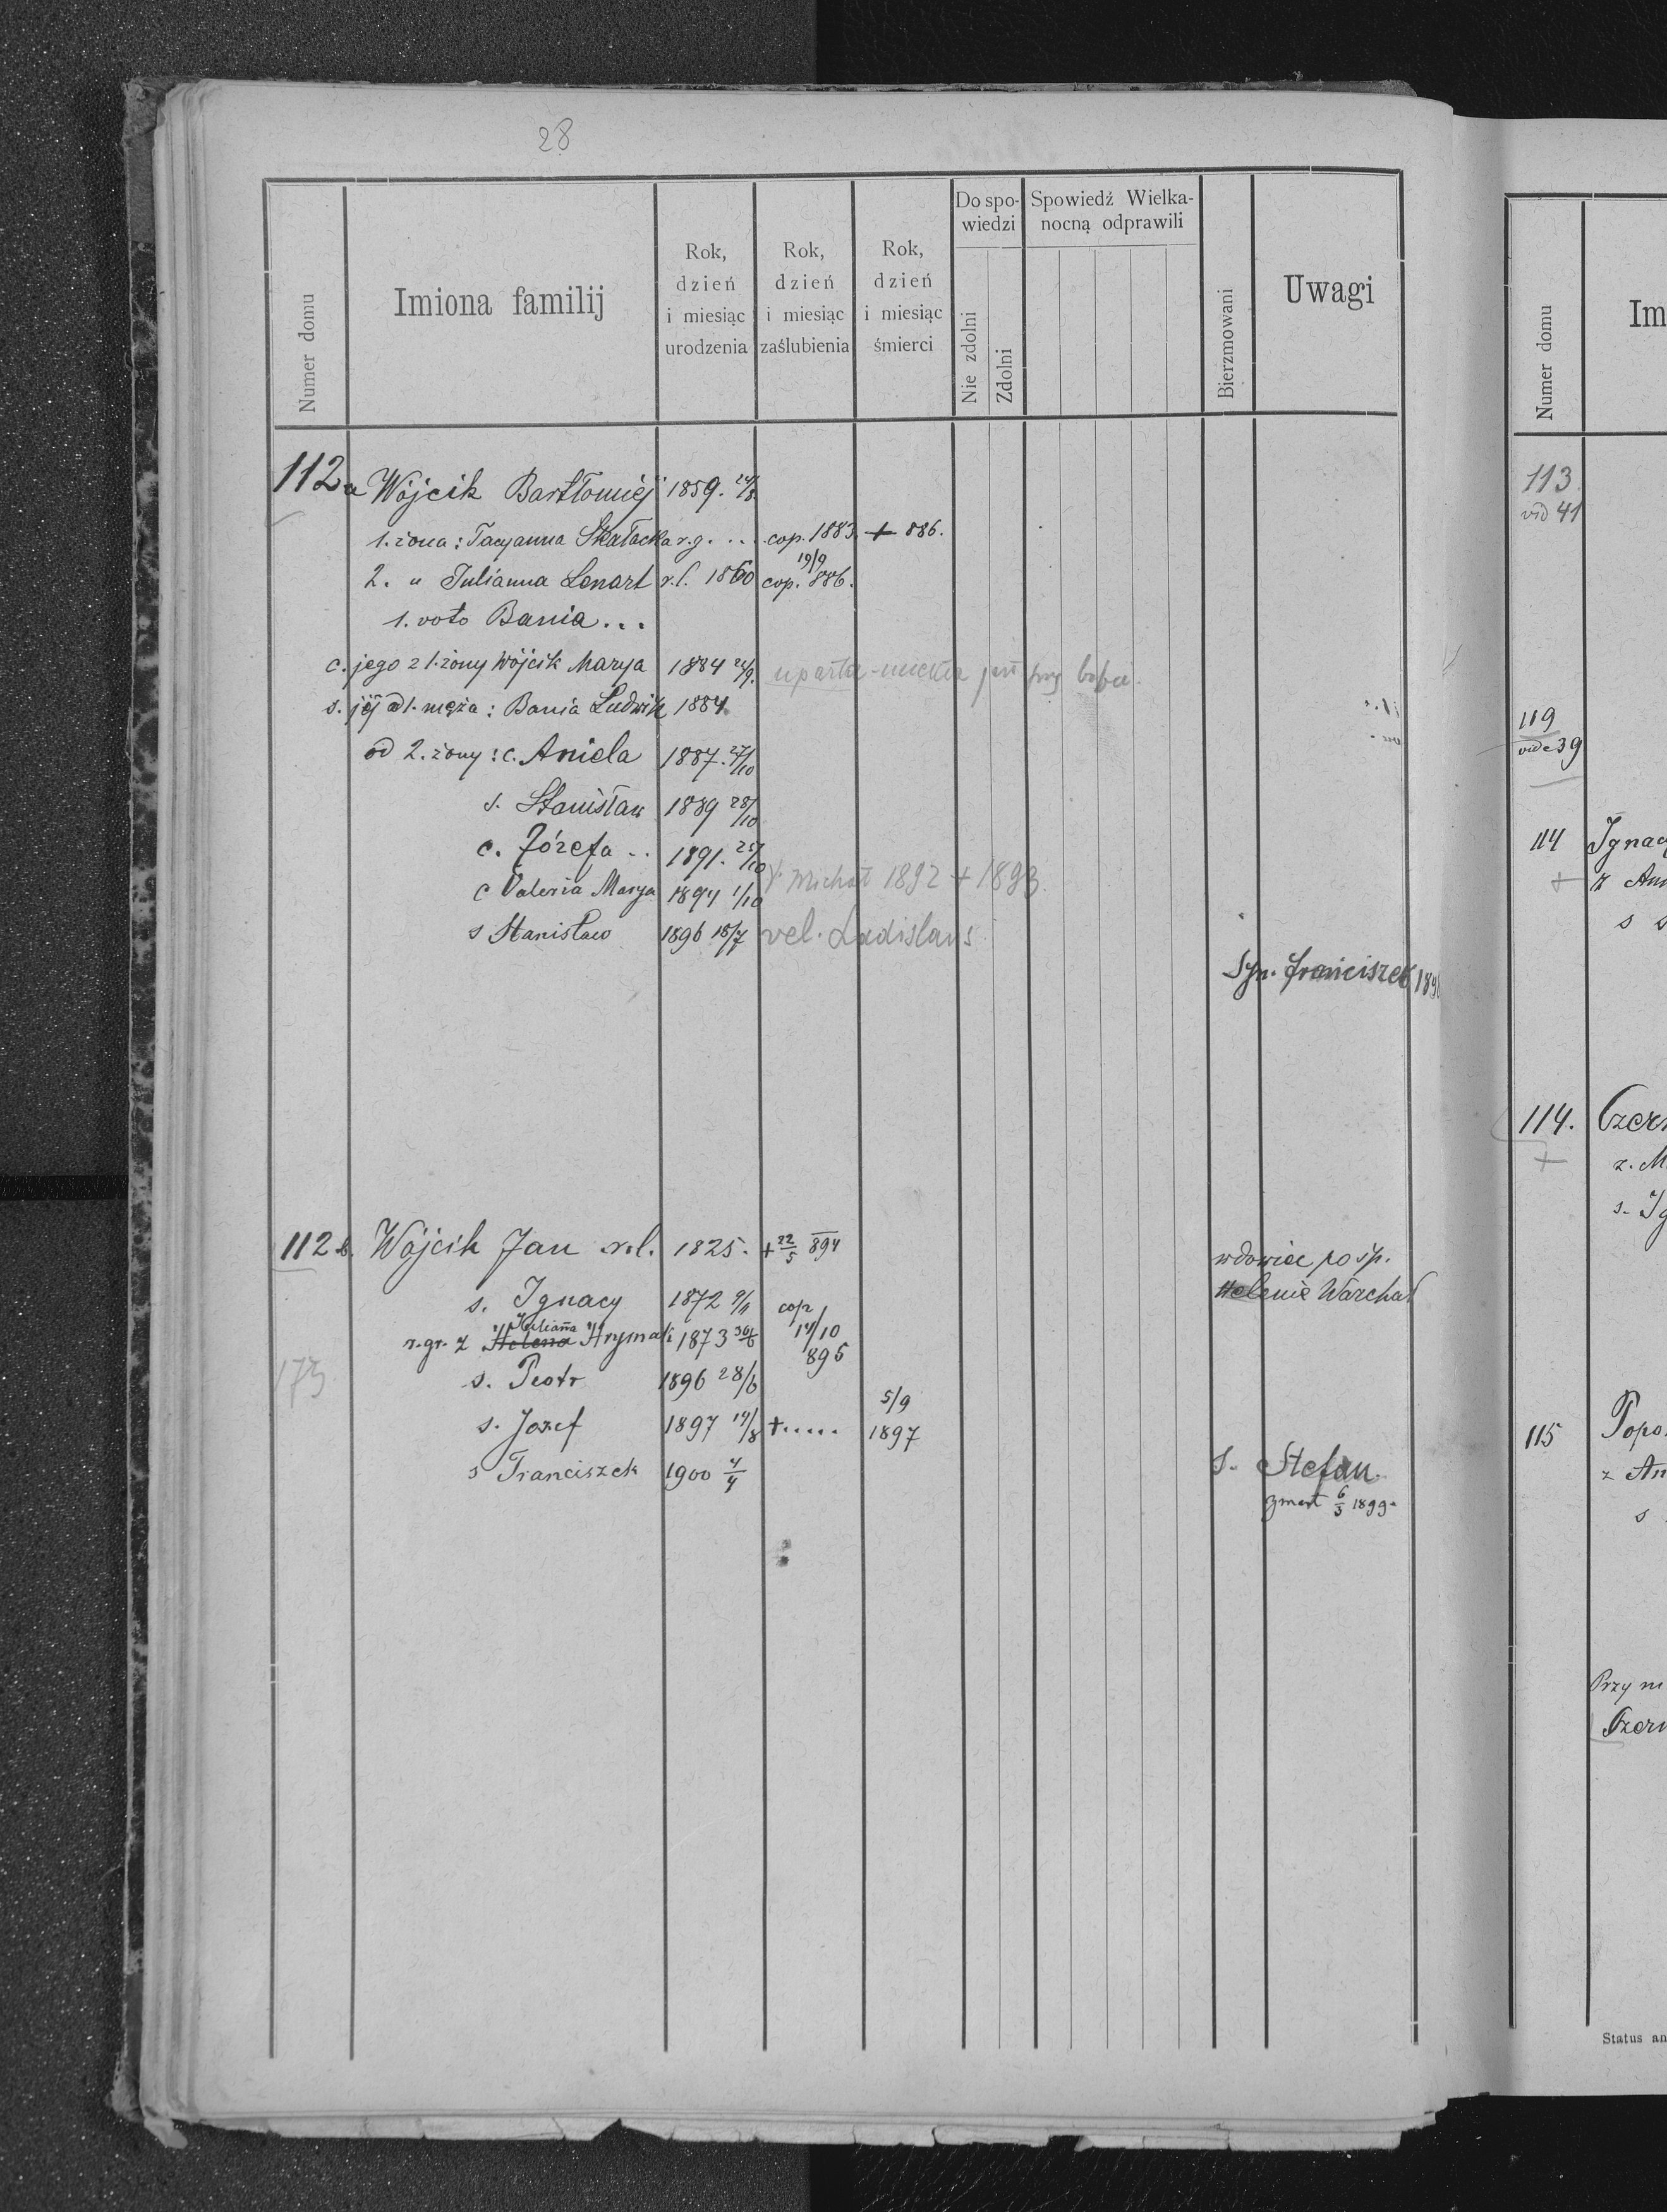 28
Numer domu
Imiona familij
Rok, dzień i miesiąc urodzenia
Rok, dzień i miesiąc zaślubienia
Rok, dzień i miesiąc śmierci
Do spowiedzi
Nie zdolni
Zdolni
Spowiedź Wielkanocną odprawili
Bierzmowani
Uwagi
112a Wójcik Bartłomiej 1859. 24/8
1. żona: Tacyanna Skałacka r.g. ... cop. 1883. + 886.
2. " Julianna Lenart r.l. 1860 cop. 19/9 886.
1. voto Bania...
c. jego z 1. żony Wójcik Marya 1884 24/9. uparta jest przy
s. jéj z 1. męża: Bania Ludwik 1884
od 2. żony: c. Aniela 1887. 27/10
s. Stanisław 1889 28/10
c. Józefa .. 1891. 25/10
s. Michał 1892 + 1893
c Valeria Marya 1894 1/10
s Stanisław 1896 18/7 vel. Ladislaus
Syn. Franciszek 189
112 b. Wójcik Jan r.l. 1825. + 22/5 894 wdowiec po śp.
Helenie Warchał
s. Ignacy 1872 9/1 cop 14/10 895
r.gr. z Helena Juliana Hrymak 1873 30/6
173 s. Piotr 1896 28/6
s. Jozef 1897 14/8 +..... 5/9 1897
s Franciszek 1900 4/4 S. Stefan.
zmarł 6/3 1899.
Numer domu
Im
113
vid 41
119
vide 39
114 Ignac
z An
s
114. Czer
z. M
s. Ig
115 Popo
z An
s
Przy m
Czer
Status an